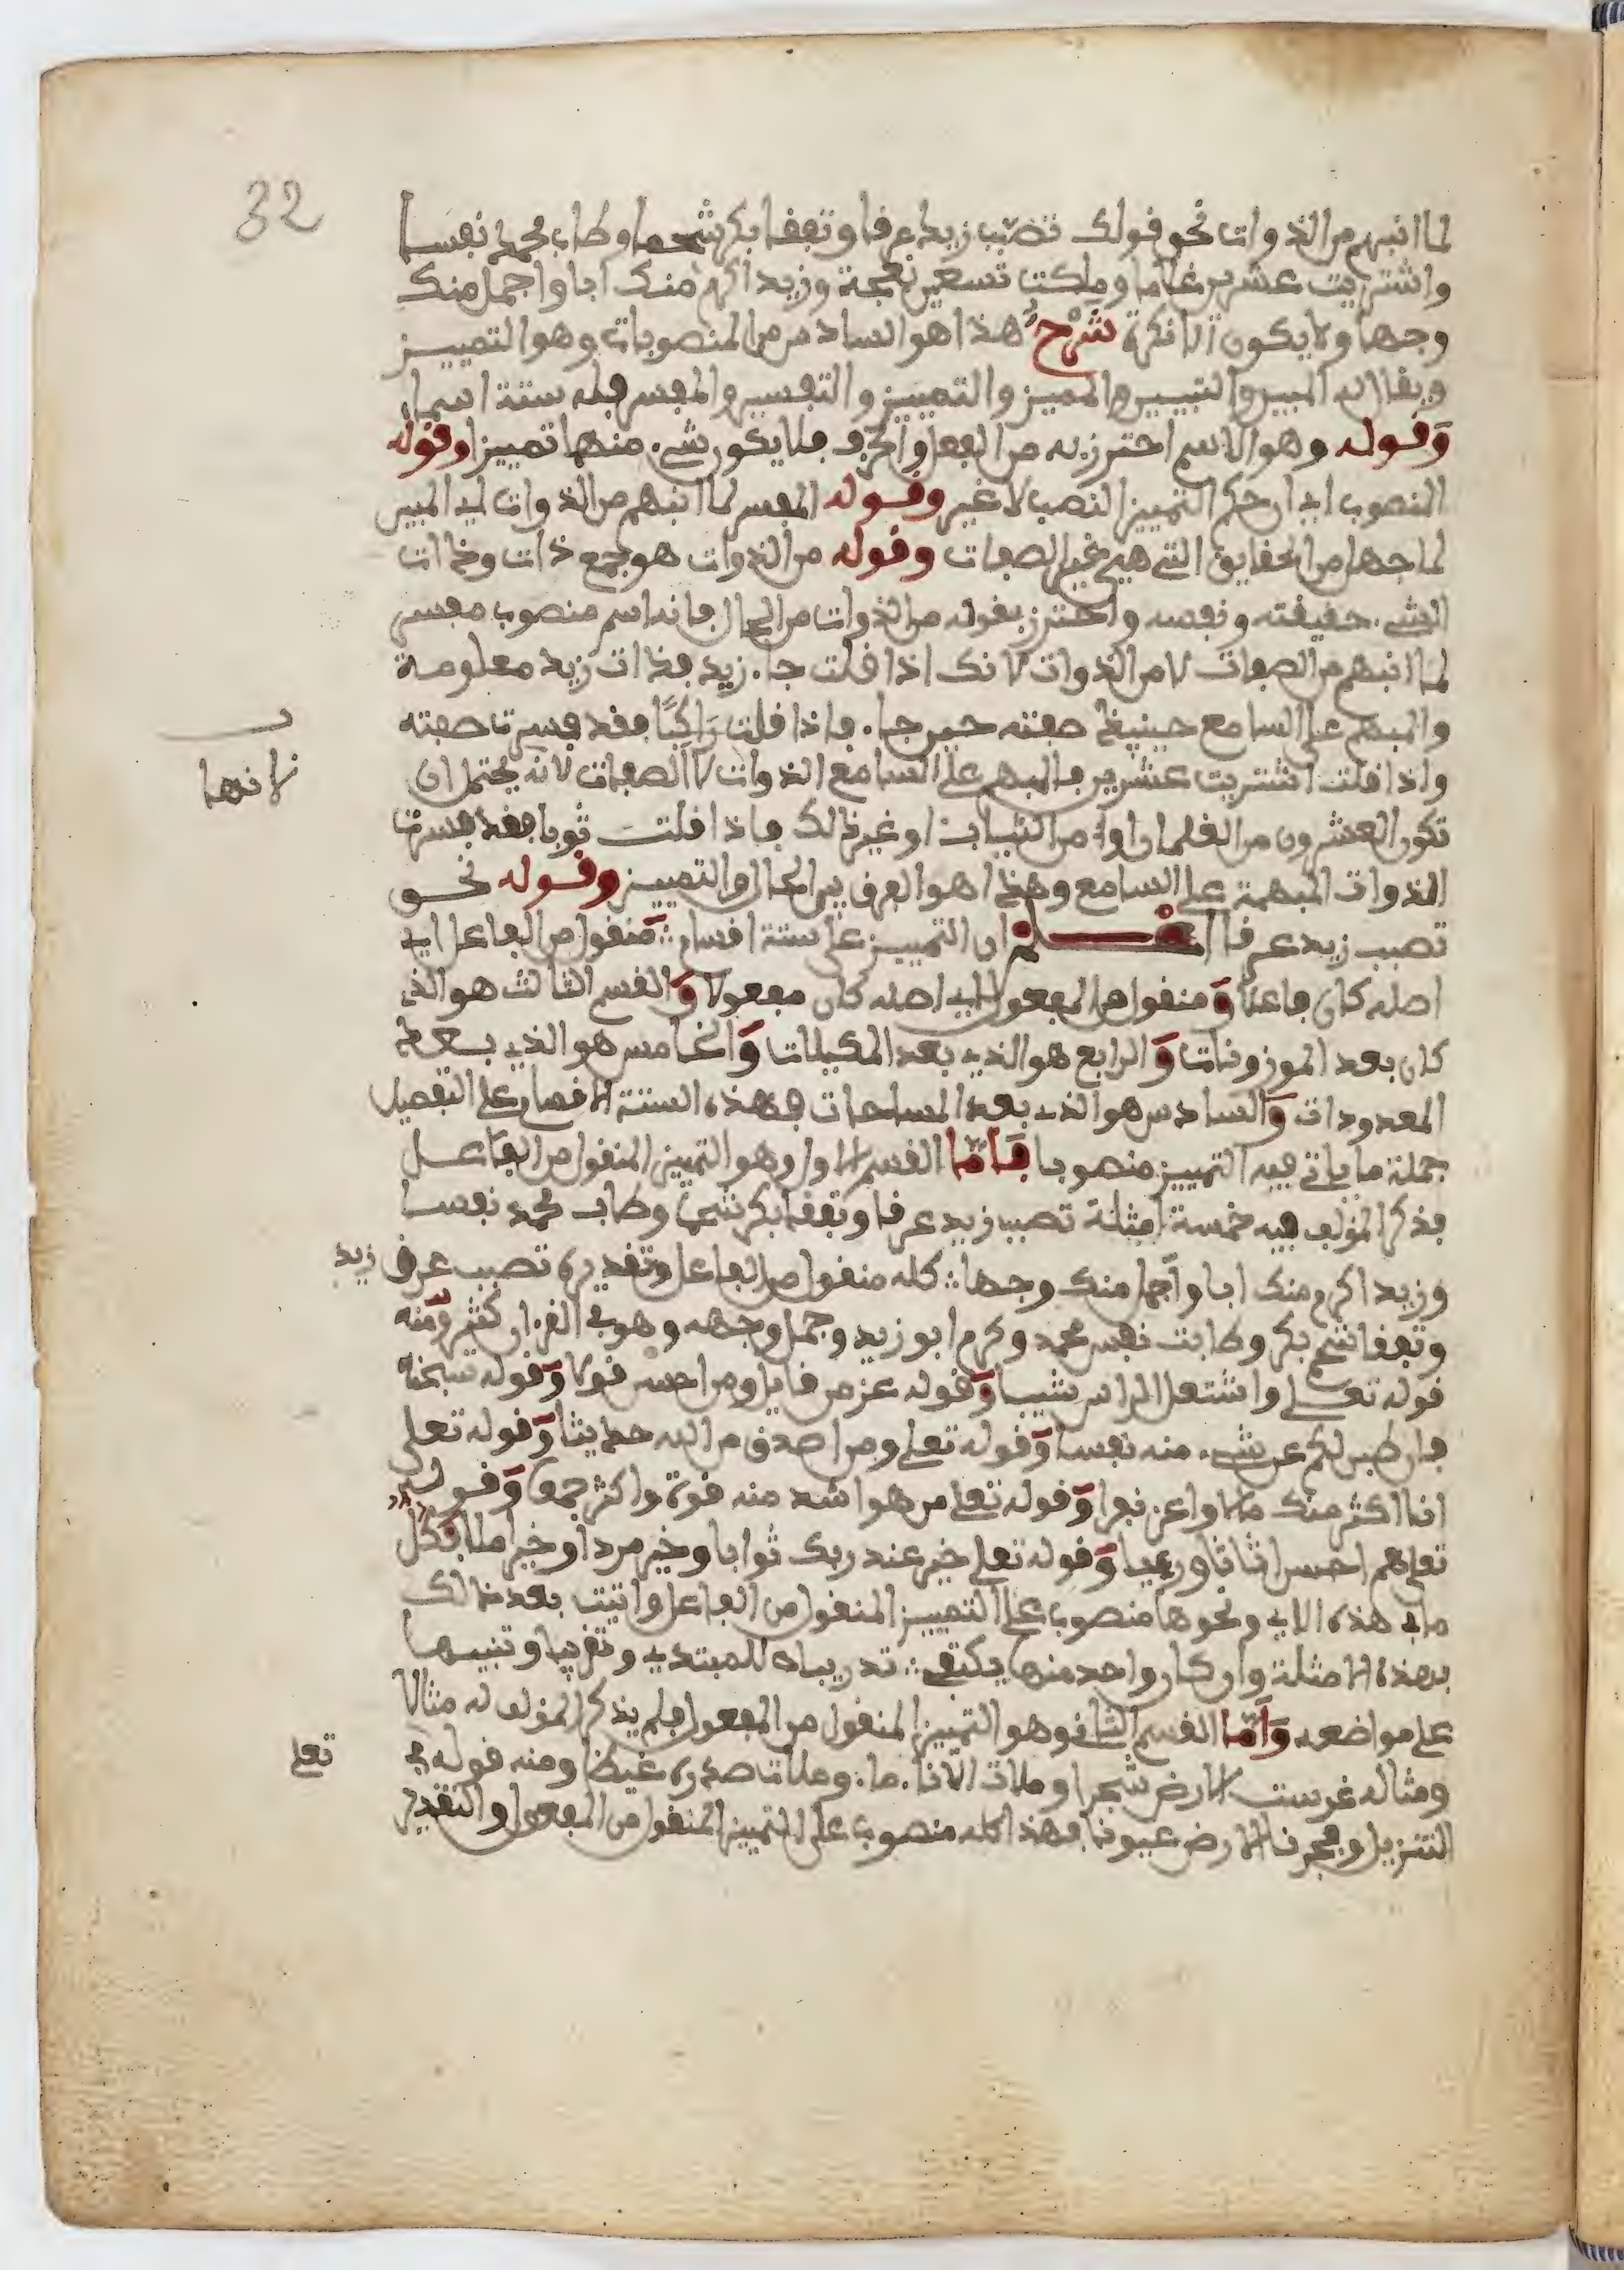 32
لما انبهم من الذوات نحو قولك تصبب زيد عرقا وتفقا بكر شحما وطاب محمد نفسا
واشتريت عشرين غلاما وملكت تسعين نعجة وزيد اكرم منك ابا واجمل منك
وجها ولا يكون الا نكرة شرح هذا هو السادس من المنصوبات وهو التمييز
ويقال له المبين والتبيين والمميز والتمييز والتفسير والمفسر فله ستة اسماء
وقوله وهو الاسم احترز به من الفعل والحرف فلا يكون شيء منها تمييزا وقوله
المنصوب اي ان حكم التمييز النصب لا غير وقوله المفسر لما انبهم من الذوات اي المبين
لما جهل من الحقايق التي هي غير الصفات وقوله من الذوات هو جمع ذات وذات
الشيء حقيقته ونفسه واحترز بقوله من الذوات من الحال فانه اسم منصوب مفسر
لما انبهم من الصفات لا من الذوات لانك اذا قلت جاء زيد فذات زيد معلومة
والمبهم على السامع حينيذ صفته حين جاء فاذا قلت راكبا فقد فسرت صفته
واذا قلت اشتريت عشرين فالمبهم على السامع الذوات لا الصفات لانه يحتمل ان
لانها
تكون العشرون من الغلمان او من الثياب او غير ذلك فاذا قلت ثوبا فقد فسرت
الذوات المبهمة على السامع وهذا هو الفرق بين الحال والتمييز وقوله نحو
تصبب زيد عرقا اعلم ان التمييز على ستة اقسام منقول من الفاعل اي
اصله كان فاعلا ومنقول من المفعول اي اصله كان مفعولا والقسم الثالث هو الذي
كان بعد الموزونات والرابع هو الذي بعد المكيلات والخامس هو الذي بعد
المعدودات والسادس هو الذي بعد المساحات فهذه الستة الاقسام على التفصيل
جملة ما ياتي فيه التمييز منصوبا فاما القسم الاول وهو التمييز المنقول من الفاعل
فذكر المؤلف فيه خمسة امثلة تصبب زيد عرقا وتفقا بكر شحما وطاب محمد نفسا
وزيد اكرم منك ابا واجمل منك وجها كله منقول من الفاعل وتقديره تصبب عرق زيد
وتفقا شحم بكر وطابت نفس محمد وكرم ابو زيد وجمل وجهه وهو في القران كثير ومنه
قوله تعلى واشتعل الراس شيبا وقوله عز من قايل ومن احسن قولا وقوله سبحنه
فان طبن لكم عن شيء منه نفسا وقوله تعلى ومن اصدق من الله حديثا وقوله تعلى
انا اكثر منك مالا واعز نفرا وقوله تعلى من هو اشد منه قوة واكثر جمعا وقوله
تعلى هم احسن اثاثا ورءيا وقوله تعلى خير عند ربك ثوابا وخير مردا وخير املا فكل
ما في هذه الاي ونحوها منصوب على التمييز المنقول من الفاعل واتيت بعد ذالك
بهذه الامثلة وان كان واحد منها يكتفى تدريبا للمبتدي وتقريبا وتنبيها
على مواضعه واما القسم الثاني وهو التمييز المنقول من المفعول فلم يذكر المؤلف له مثالا
ومثاله غرست الارض شجرا وملات الاناء ماء وملات صدره غيظا ومنه قوله تعلى في
التنزيل وفجرنا الارض عيونا فهذا كله منصوب على التمييز المنقول من المفعول والتقدير